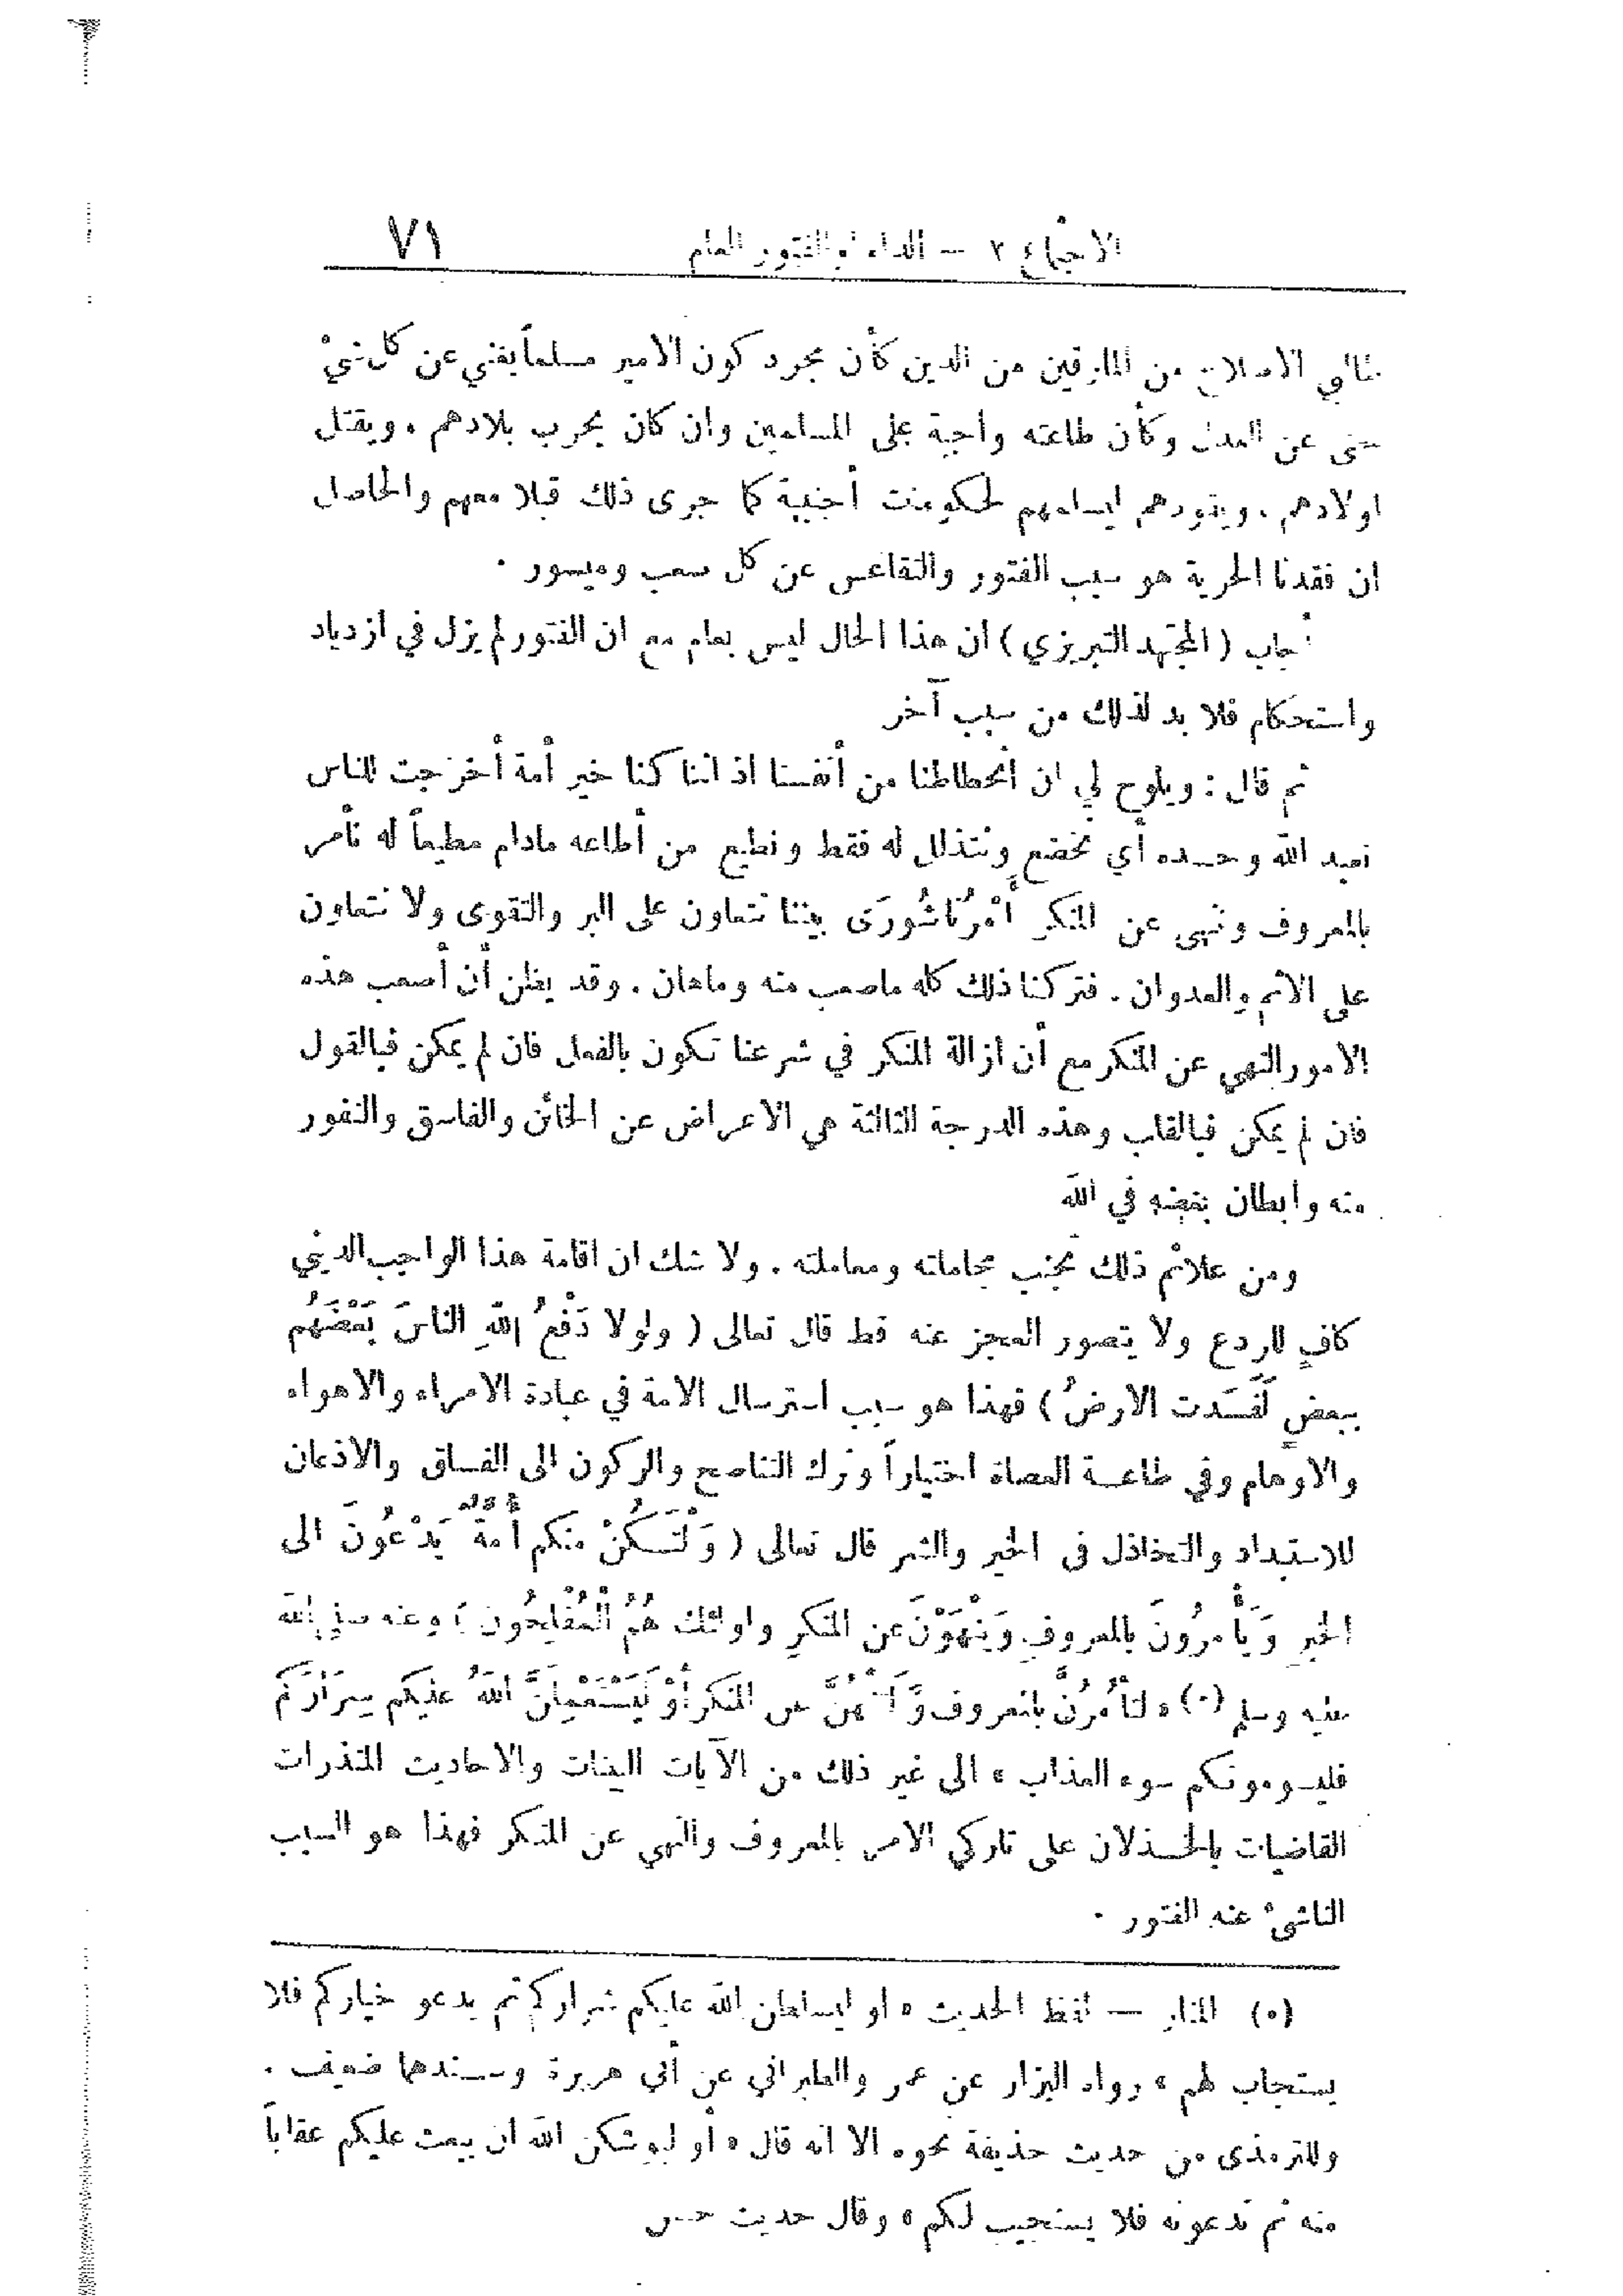 الاجتماع ٢ — الداء أو الفتور العام ٧١
الاصلاح من المارقين من الدين كأن مجرد كون الامير مسلماً يغني عن كل شيءْ
حتى عن العدل وكأن طاعته واجبة على المسلمين وان كان يخرب بلادهم . ويقتل
اولادهم . ويقودهم ليسلمهم لحكومات أجنبية كما جرى ذلك قبلا معهم والحاصل
ان فقدنا الحرية هو سبب الفتور والتقاعس عن كل صعب وميسور .
أجاب ( المجتهد التبريزي ) ان هذا الحال ليس بعام مع ان الفتور لم يزل في ازدياد
واستحكام فلا بد لذلك من سبب آخر
ثم قال : ويلوح لي ان انحطاطنا من أنفسنا اذ اننا كنا خير أمة أخرجت للناس
نعبد الله وحده أي نخضع ونتذلل له فقط ونطيع من أطاعه مادام مطيعاً له نأمر
بالمعروف وننهى عن المنكر أَمْرُنَا شُورَى بيننا نتعاون على البر والتقوى ولا نتعاون
على الاثم والعدوان . فتركنا ذلك كله ماصعب منه وماهان . وقد يظن أن أصعب هذه
الامور النهي عن المنكر مع أن ازالة المنكر في شرعنا تكون بالفعل فان لم يمكن فبالقول
فان لم يمكن فبالقلب وهذه الدرجة الثالثة هي الاعراض عن الخائن والفاسق والنفور
منه وابطان بغضه في الله
ومن علائم ذلك تجنب مجاملته ومعاملته . ولا شك ان اقامة هذا الواجب الديني
كافٍ للردع ولا يتصور العجز عنه قط قال تعالى ( ولولا دَفْعُ اللهِ الناسَ بَعْضَهُم
ببعضٍ لَفَسَدت الارضُ ) فهذا هو سبب استرسال الامة في عبادة الامراء والاهواء
والاوهام وفي طاعة العصاة اختياراً وترك التناصح والركون الى الفساق والاذعان
للاستبداد والتخاذل في الخير والشر قال تعالى ( وَلْتَكُنْ منكم أُمَّةٌ يَدْعُونَ الى
الخير وَيَأْمرُونَ بالمعروفِ وَيَنْهَوْنَ عن المنكرِ واولئك هُمُ الْمُفْلِحُون ) وعنه صلى الله
عليه وسلم (٠) « لتأْمُرُنَّ بالمعروف وَلَتَنْهُنَّ عن المنكر أَوْ لَيَسْتَعْمِلَنَّ اللهُ عليكم شِرَارَكم
فليسومونكم سوء العذاب » الى غير ذلك من الآيات البينات والاحاديث المنذرات
القاضيات بالخذلان على تاركي الامر بالمعروف والنهي عن المنكر فهذا هو السبب
الناشئ عنه الفتور .
(٠) المنار — لفظ الحديث « او ليسلطن الله عليكم شراركم ثم يدعو خياركم فلا
يستجاب لهم » رواه البزار عن عمر والطبراني عن أبي هريرة وسندهما ضعيف .
وللترمذي من حديث حذيفة نحوه الا انه قال « أو ليوشكن الله ان يبعث عليكم عقاباً
منه ثم تدعونه فلا يستجيب لكم » وقال حديث حسن